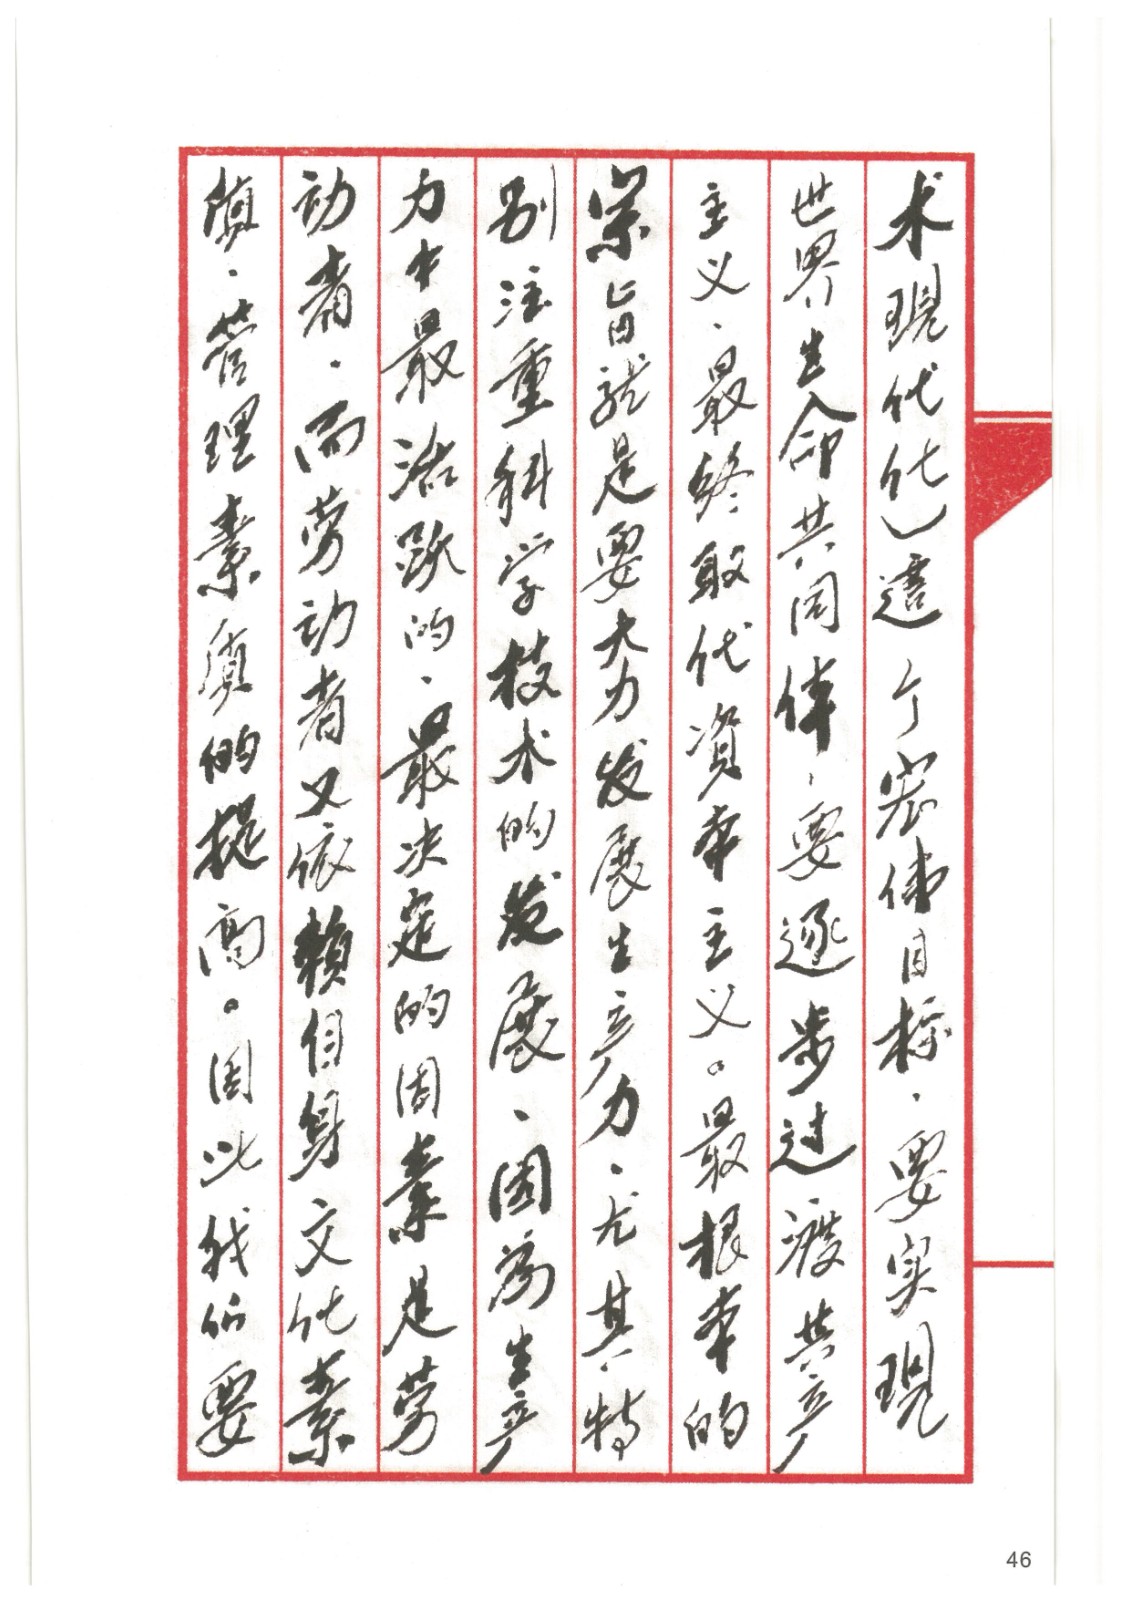 术现代化）这个宏伟目标，要实现
世界生命共同体，要逐步过渡共产
主义，最终取代資本主义。最根本的
宗旨就是要大力发展生产力，尤其特
别注重科学技术的发展，因为生产
力中最活跃的，最决定的因素是劳
动者，而劳动者又依赖自身文化素
质，管理素质的提高。因此我们要
46